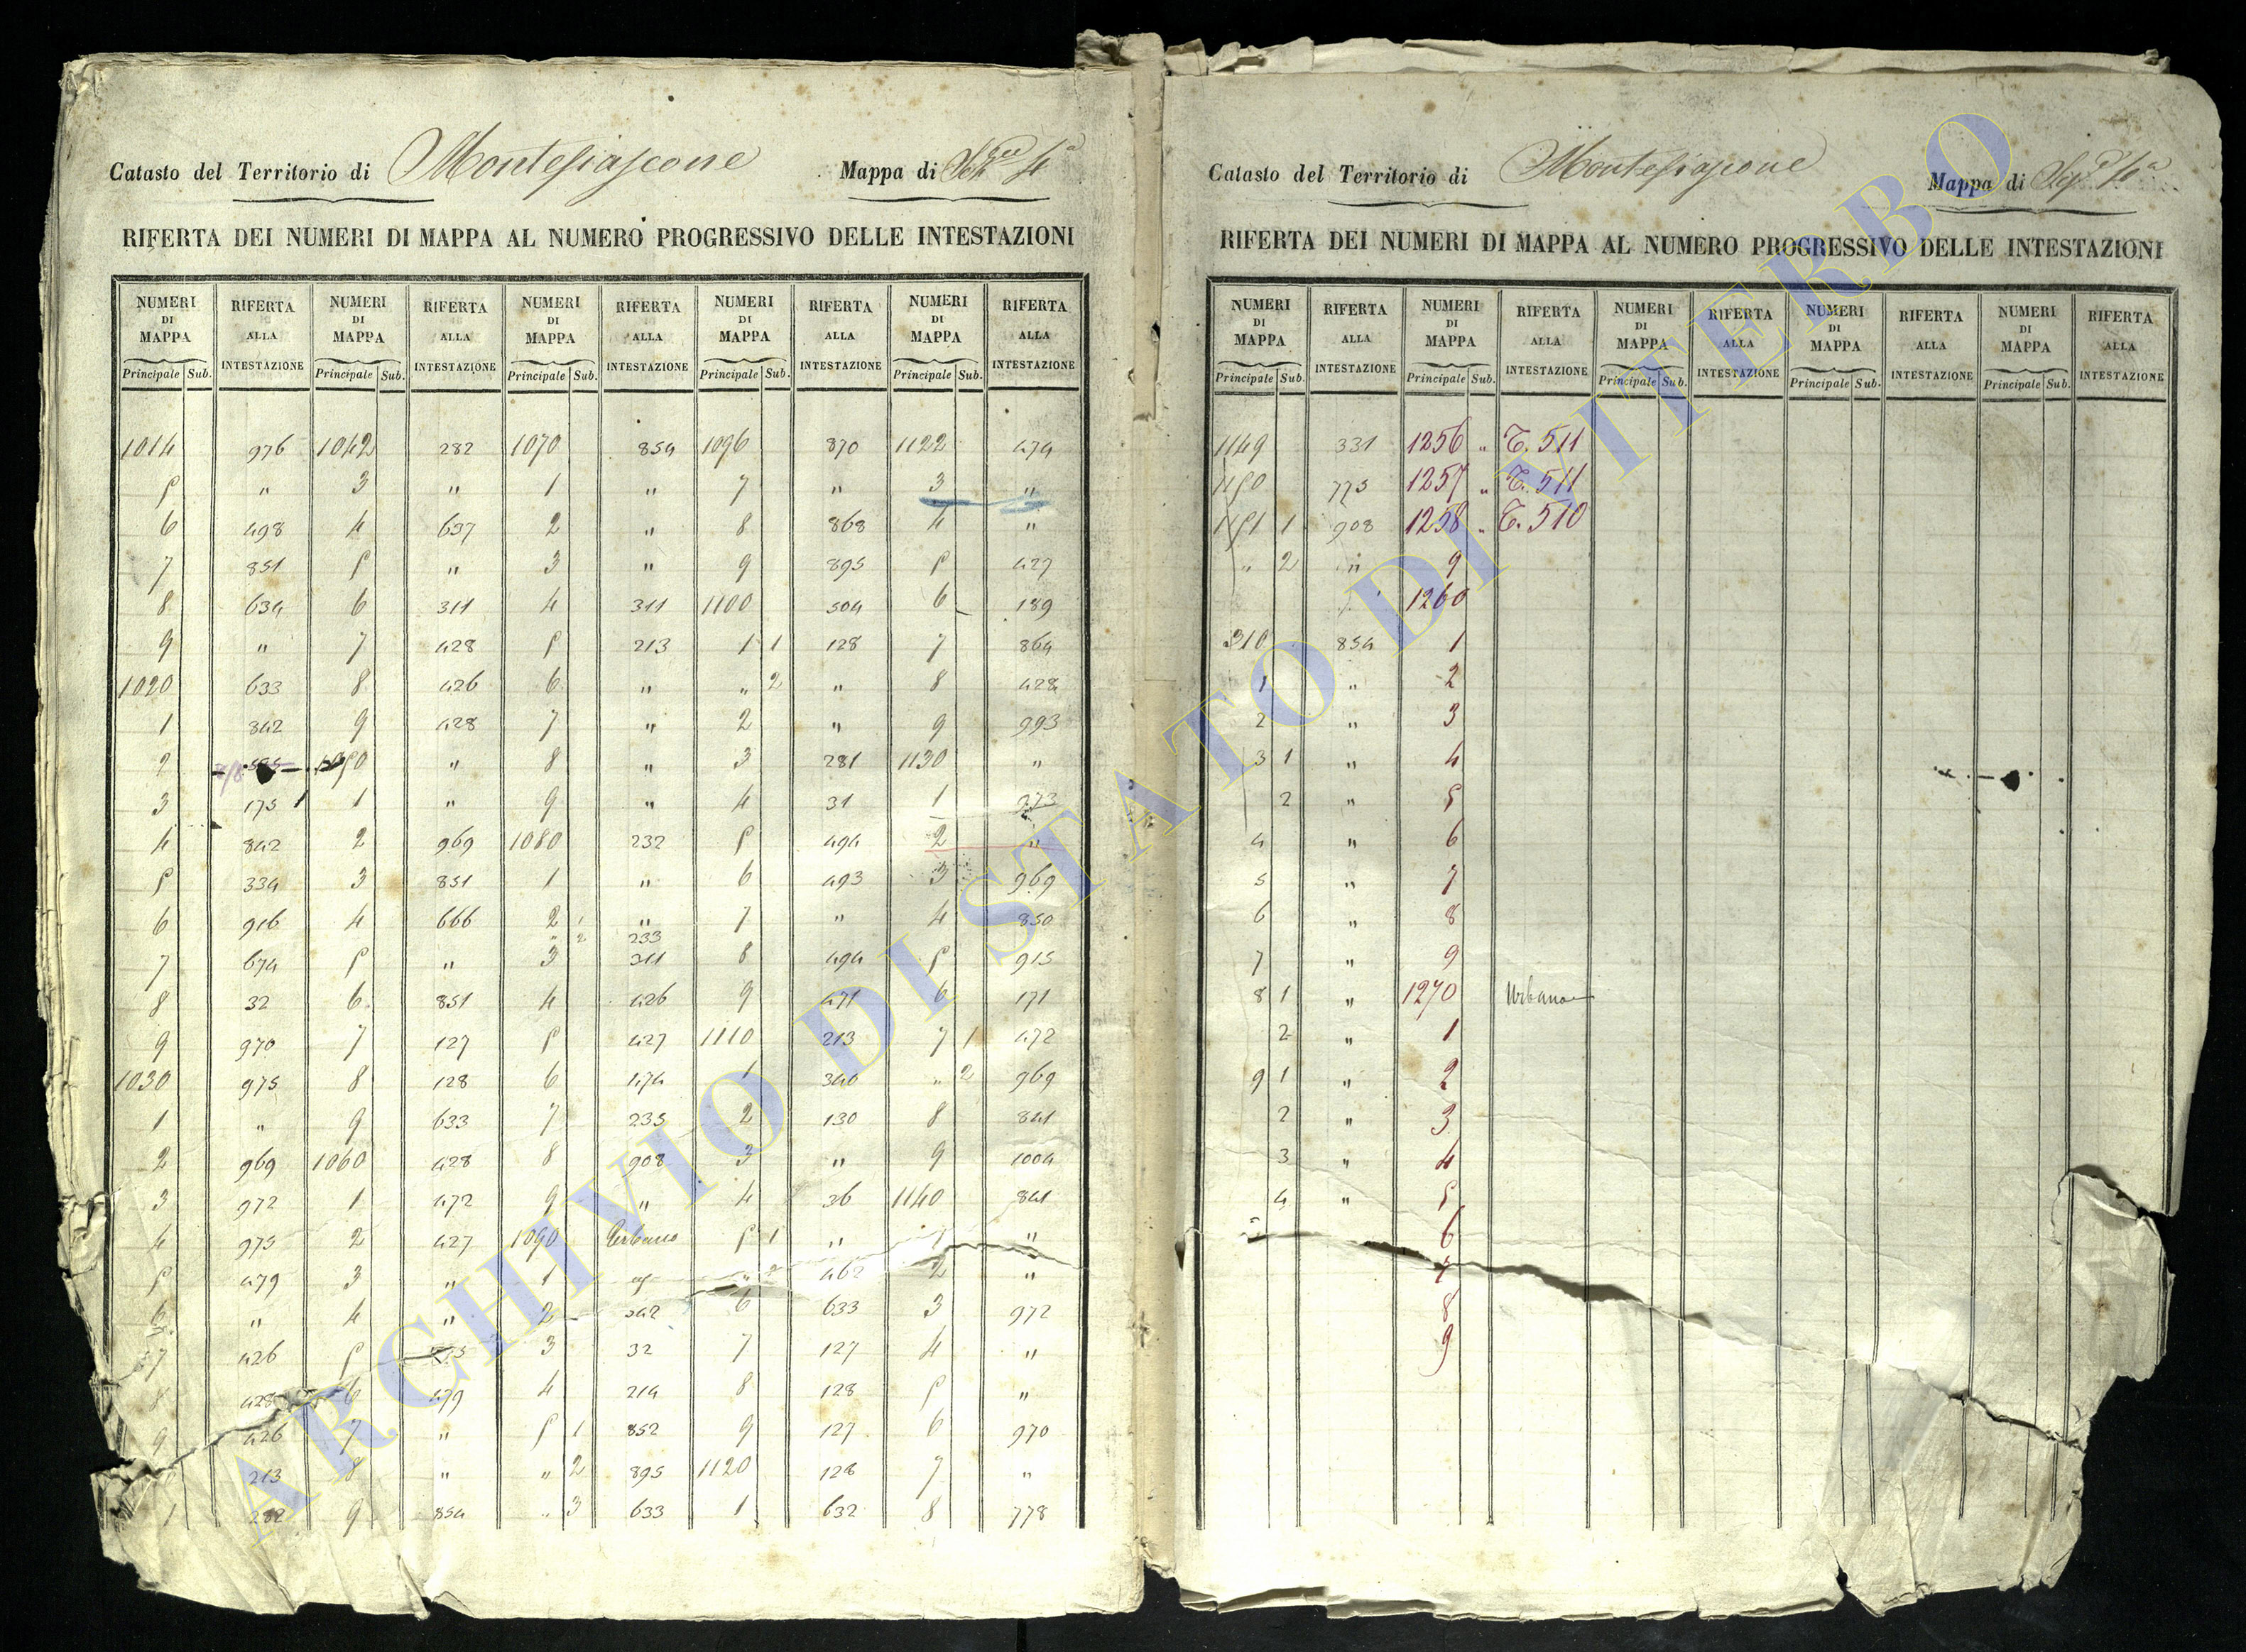 Catasto del Territorio di Montefiascone Mappa di Sez. 4ª
RIFERTA DEI NUMERI DI MAPPA AL NUMERO PROGRESSIVO DELLE INTESTAZIONI
NUMERI DI MAPPA RIFERTA ALLA INTESTAZIONE NUMERI DI MAPPA RIFERTA ALLA INTESTAZIONE NUMERI DI MAPPA RIFERTA ALLA INTESTAZIONE NUMERI DI MAPPA RIFERTA ALLA INTESTAZIONE NUMERI DI MAPPA RIFERTA ALLA INTESTAZIONE
Principale Sub. Principale Sub. Principale Sub. Principale Sub. Principale Sub.
1014 976 1042 282 1070 854 1096 870 1122 474
5 " 3 " 1 " 7 " 3 "
6 498 4 637 2 " 8 868 4 "
7 851 5 " 3 " 9 895 5 427
8 634 6 311 4 311 1100 504 6 189
9 " 7 428 5 213 1 1 128 7 864
1020 633 8 426 6 " " 2 " 8 428
1 842 9 428 7 " 2 " 9 993
2 1050 " 8 " 3 281 1130 "
3 175 1 " 9 " 4 31 1 973
4 842 2 969 1080 232 5 494 2 "
5 334 3 851 1 " 6 493 3 969
6 916 4 666 2 1 " 7 " 4 850
" 2 233
7 674 5 " 3 311 8 494 5 915
8 32 6 851 4 426 9 471 6 171
9 970 7 127 5 427 1110 213 7 1 472
1030 975 8 128 6 174 1 346 " 2 969
1 " 9 633 7 235 2 130 8 841
2 969 1060 428 8 908 3 " 9 1004
3 972 1 472 9 " 4 36 1140 841
4 975 2 427 1090 Urbano 5 1 " "
5 479 3 " 1 " 2 462 2 "
6 " 4 " 2 342 6 633 3 972
7 426 5 3 32 7 127 4 "
8 428 6 479 4 214 8 128 5 "
9 426 7 " 5 1 852 9 127 6 970
213 8 " " 2 895 1120 128 7 "
1 282 9 854 " 3 633 1 632 8 778
Catasto del Territorio di Montefiascone Mappa di Sez. 4ª
RIFERTA DEI NUMERI DI MAPPA AL NUMERO PROGRESSIVO DELLE INTESTAZIONI
NUMERI DI MAPPA RIFERTA ALLA INTESTAZIONE NUMERI DI MAPPA RIFERTA ALLA INTESTAZIONE NUMERI DI MAPPA RIFERTA ALLA INTESTAZIONE NUMERI DI MAPPA RIFERTA ALLA INTESTAZIONE NUMERI DI MAPPA RIFERTA ALLA INTESTAZIONE
Principale Sub. Principale Sub. Principale Sub. Principale Sub. Principale Sub.
1149 331 1256 " T. 511
1150 775 1257 " T. 511
1151 1 908 1258 " T. 510
" 2 " 9
1260
310 854 1
1 " 2
2 " 3
3 1 " 4
2 " 5
4 " 6
5 " 7
6 " 8
7 " 9
8 1 " 1270 Urbano
2 " 1
9 1 " 2
2 " 3
3 " 4
4 " 5
6
7
8
9
ARCHIVIO DI STATO DI VITERBO